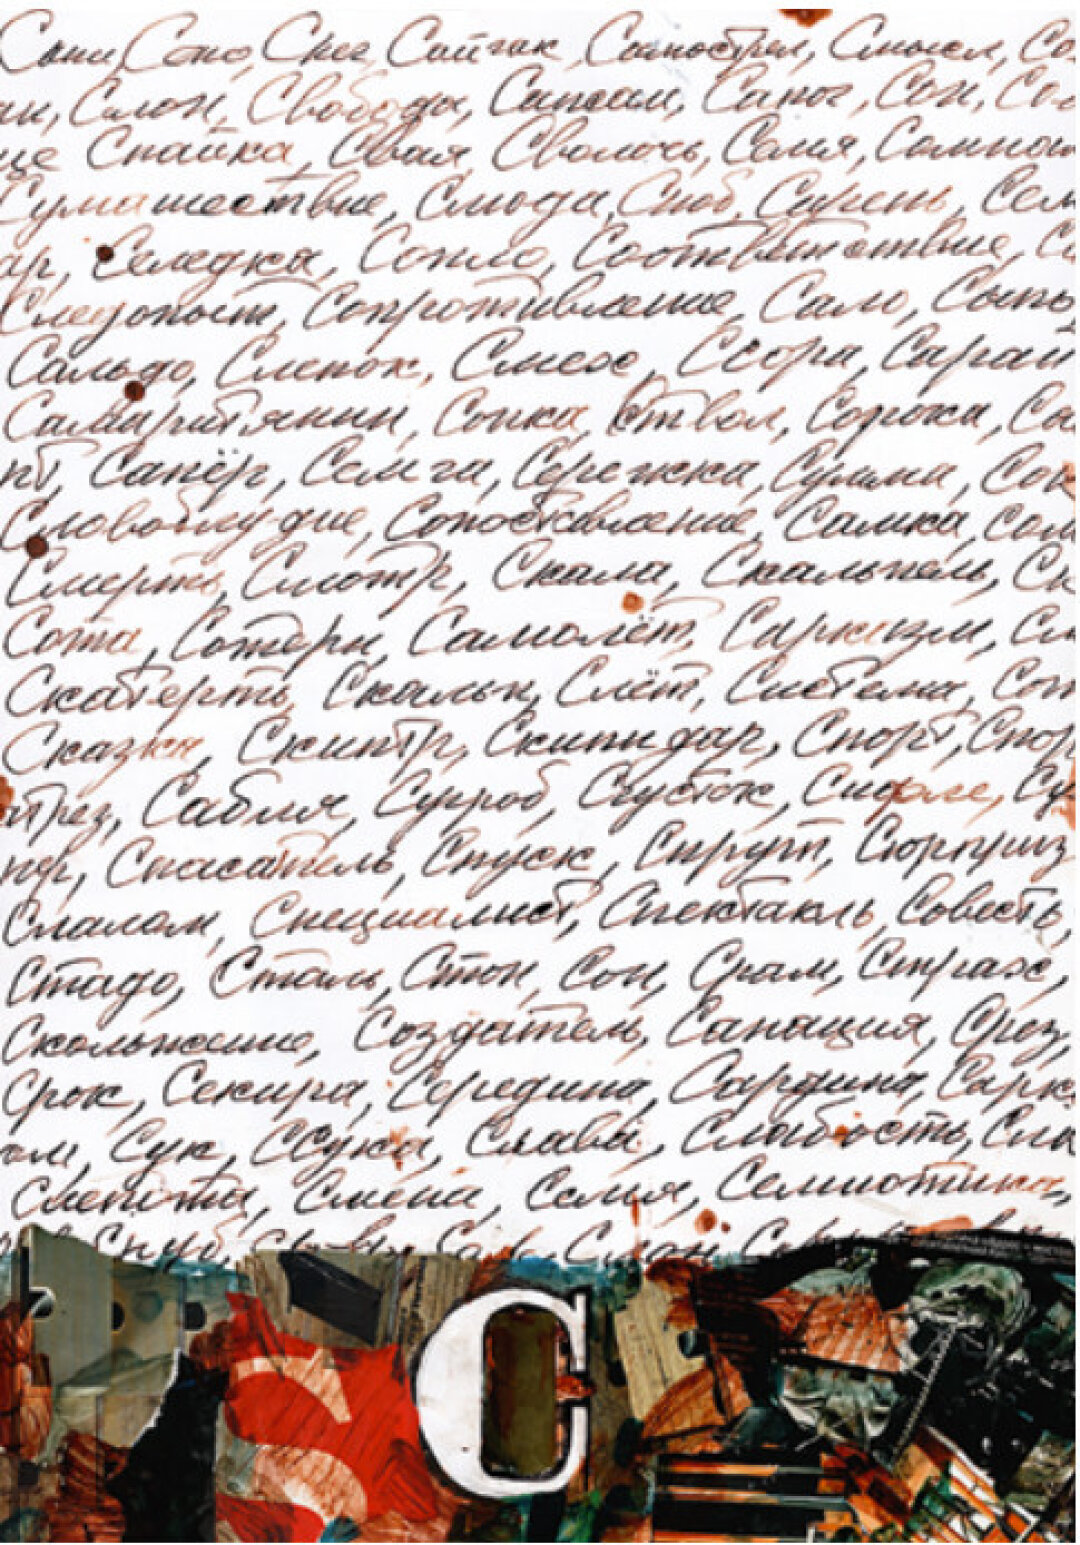 Сани, Сено, Снег, Сайгак, Самострел, Смысл, Со
ан, Слон, Свобода, Сапсан, Сапог, Сон, Со
це Спайка, Свая, Сволочь, Семя, Сомнен
Сумашествие, Слюда, Сноб, Сирень, Сем
ар, Селедка, Сопло, Соответствие, С
Следопыт, Сопротивление, Сало, Сыпь,
Сальдо, Слепок, Смех, Ссора, Сарай
Самаритянин, Сопка, Ствол, Сорока, Са
нт, Сапёр, Семга, Сережка, Сумма, Сок
Словоблудие, Сопоставление, Самка, Сом
Смерть, Смотр, Скала, Скальпель, Ск
Сота, Сатира, Самолёт, Сарказм, С
Скатерть, Скальп, Слёт, Система, Со
Сказка, Скипетр, Скипидар, Спорт, Спор
атрез, Сабля, Сугроб, Сгусток, Сидрле, Су
ир, Спасатель, Спуск, Спрут, Сюрприз
Слалом, Специалист, Спектакль, Совесть,
Стадо, Сталь, Стон, Сон, Срам, Страх,
Скольжение, Создатель, Санация, Срез,
Срок, Секира, Середина, Сардина, Сарк
ом, Сук, Ссука, Слава, Слабость, Сли
Слепота, Смена, Семя, Семиотика,
С